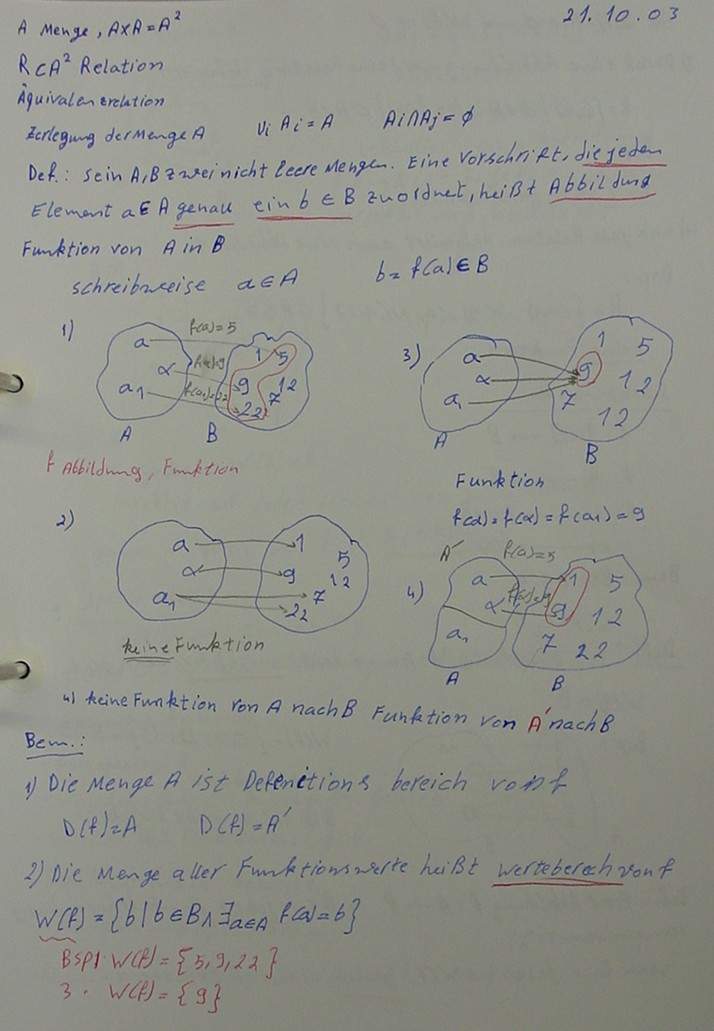 21.10.03
A Menge, A×A = A²
R⊂A² Relation
Äquivalenzrelation
Zerlegung der Menge A ∪i Ai = A Ai∩Aj = ∅
Def.: Sein A,B zwei nicht leere Mengen. Eine Vorschrift, die jeden
Element a∈A genau ein b∈B zuordnet, heißt Abbildung
Funktion von A in B
Schreibweise a∈A b = f(a)∈B
1)
f(a)=5
a
α
a1
1 5
9 12
7
22
f(α)=9
f(a1)=22
A B
f Abbildung, Funktion
3)
a
α
a1
1 5
9
12
7
12
A B
Funktion
f(a) = f(α) = f(a1) = 9
2)
a
α
a1
1
5
9 12
7
22
keine Funktion
4)
A'
f(a)=5
a
α
a1
1 5
9 12
7 22
A B
4) keine Funktion von A nach B Funktion von A' nach B
Bem.:
1) Die Menge A ist Defenitions bereich von f
D(f)=A D(f)=A'
2) Die Menge aller Funktionswerte heißt Werteberech von f
W(f) = {b | b∈B ∧ ∃a∈A f(a)=b}
Bsp1. W(f) = {5,9,22}
3. W(f) = {9}